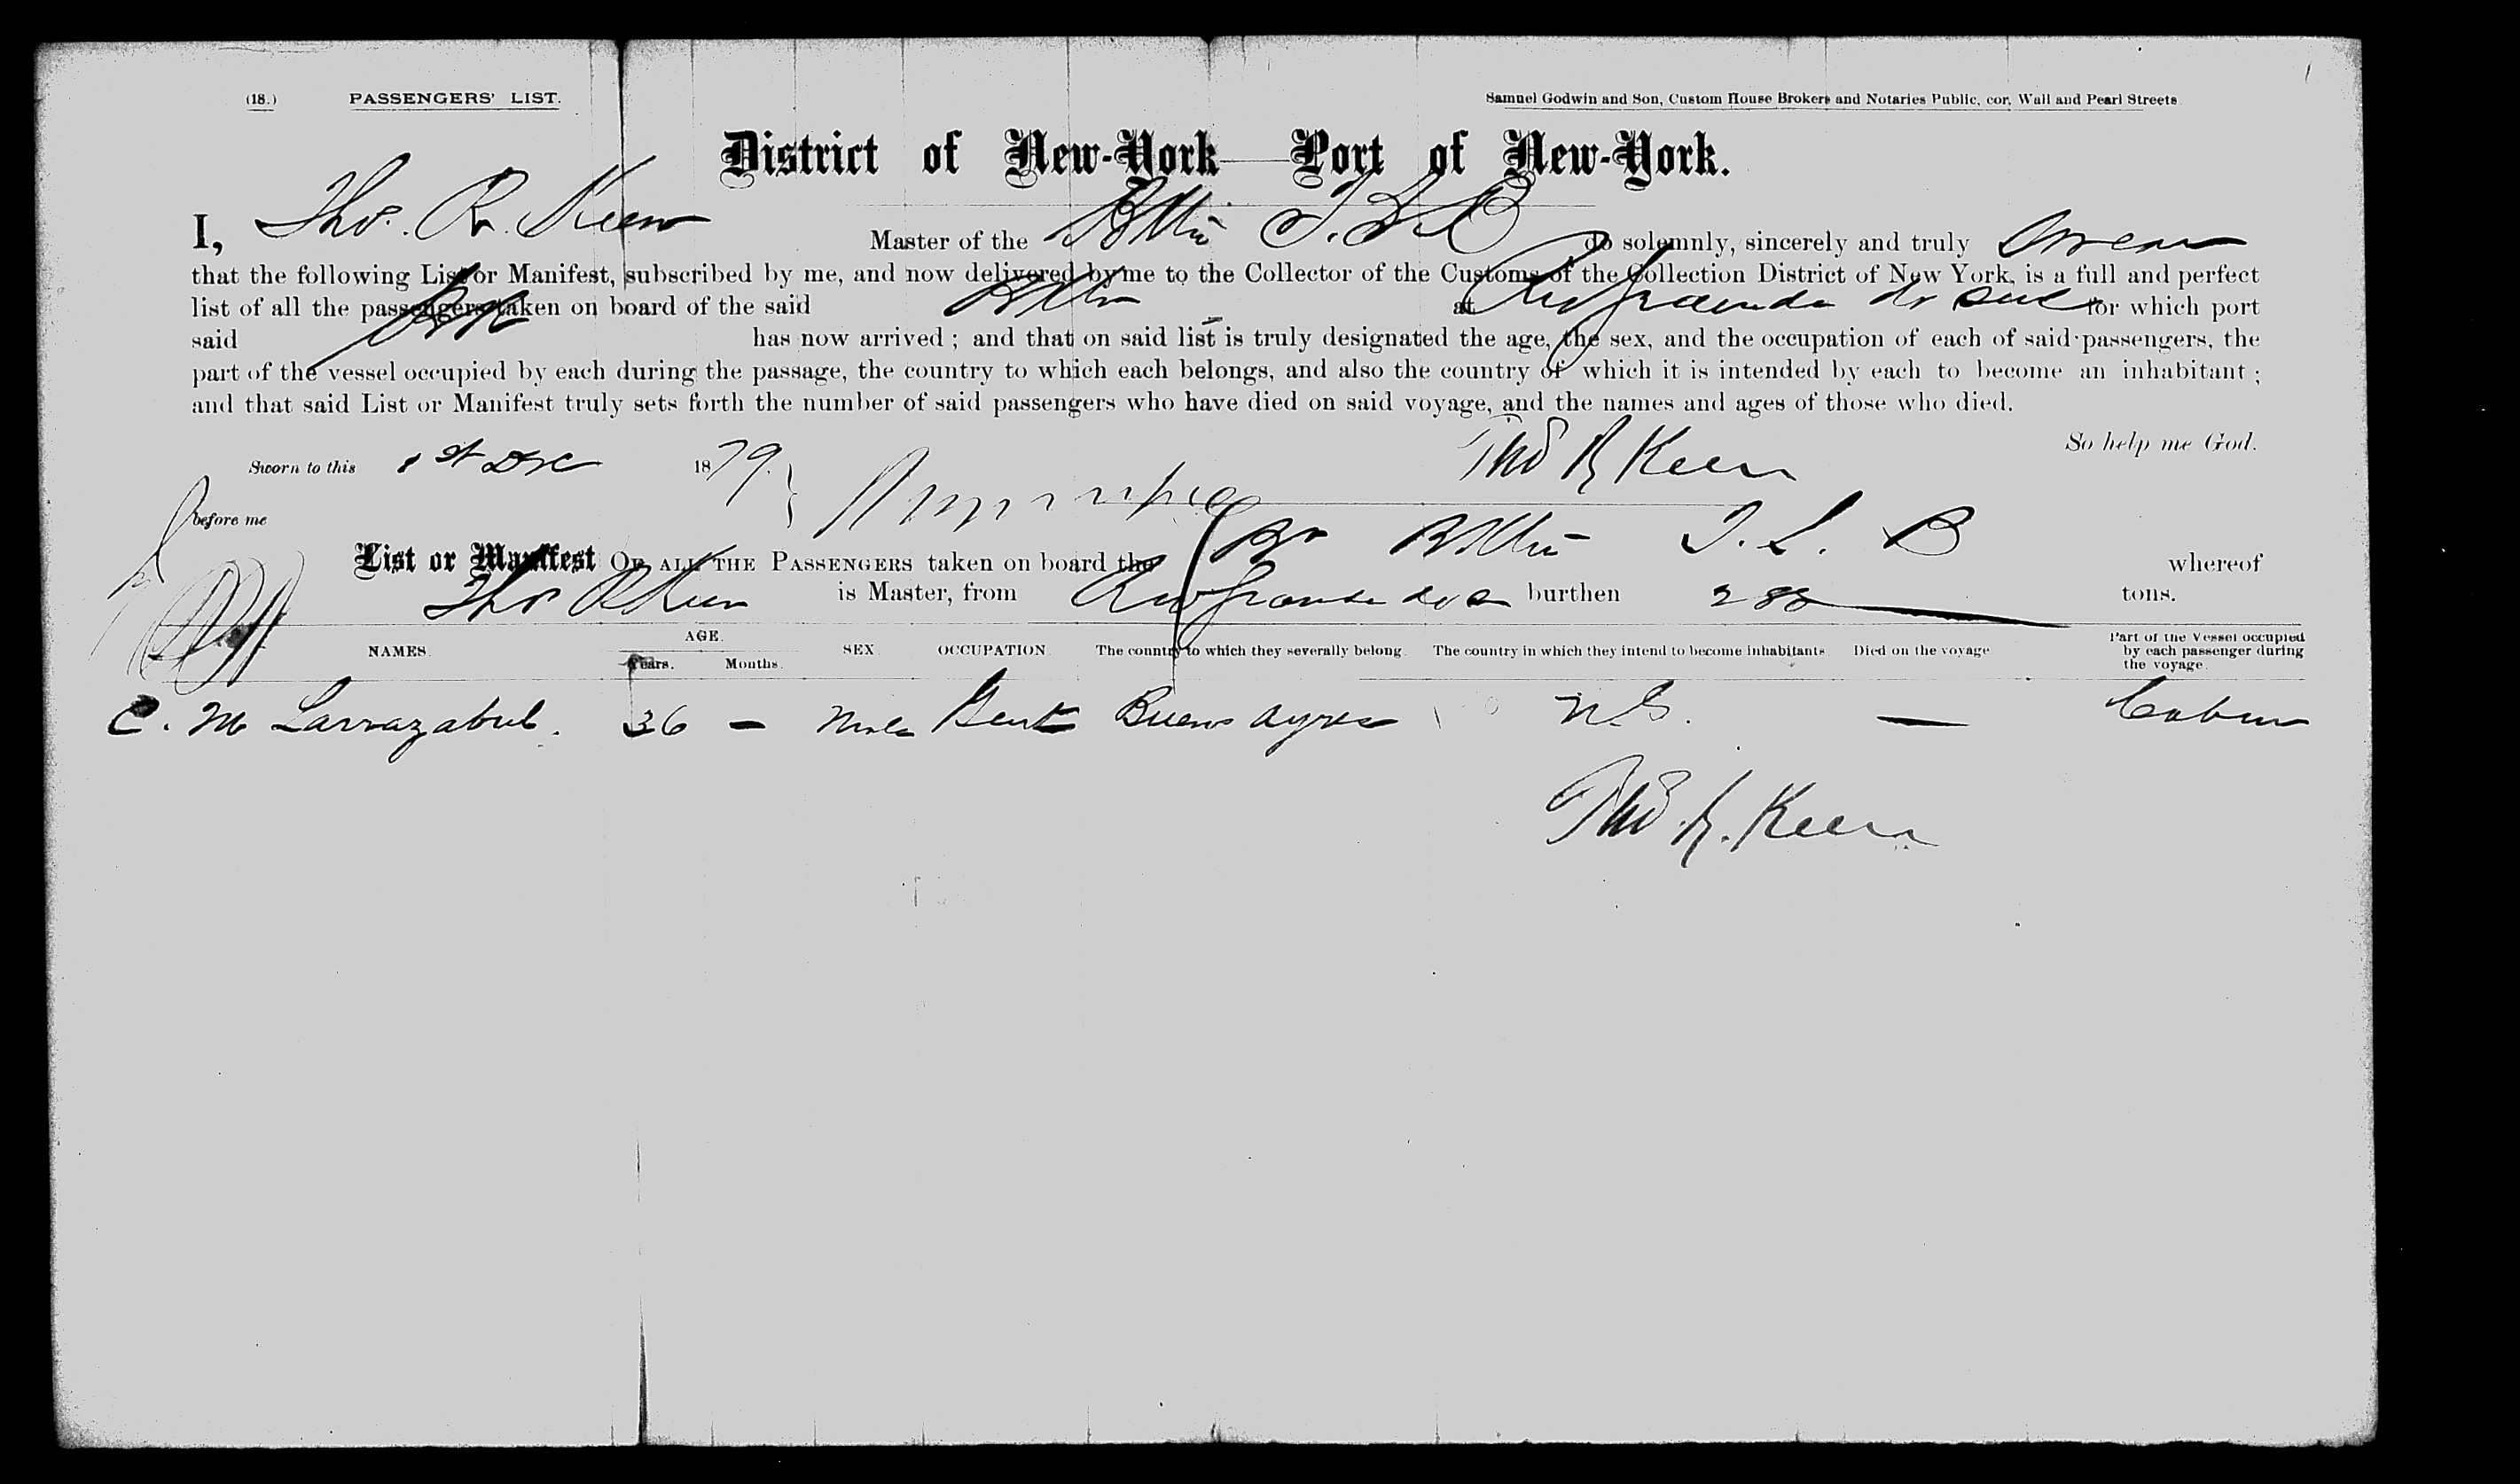 (18.) PASSENGERS' LIST. Samuel Godwin and Son, Custom House Brokers and Notaries Public, cor. Wall and Pearl Streets
District of New-York—Port of New-York.
I, Thos. R. Keen Master of the do solemnly, sincerely and truly swear
that the following List or Manifest, subscribed by me, and now delivered by me to the Collector of the Customs of the Collection District of New York, is a full and perfect
list of all the passengers taken on board of the said at Rio Grande do Sul for which port
said has now arrived ; and that on said list is truly designated the age, the sex, and the occupation of each of said passengers, the
part of the vessel occupied by each during the passage, the country to which each belongs, and also the country of which it is intended by each to become an inhabitant ;
and that said List or Manifest truly sets forth the number of said passengers who have died on said voyage, and the names and ages of those who died.
So help me God.
Sworn to this 1st Dec 1879. Thos R Keen
before me
List or Manifest OF ALL THE PASSENGERS taken on board the Br T. L. B whereof
Thos R Keen is Master, from Rio Grande do S burthen 288 tons.
NAMES. AGE. Years. Months. SEX. OCCUPATION. The country to which they severally belong. The country in which they intend to become inhabitants. Died on the voyage Part of the Vessel occupied by each passenger during the voyage.
C. M Larrazabal. 36 — Male Gent Buenos Ayres — Cabin
Thos. R. Keen